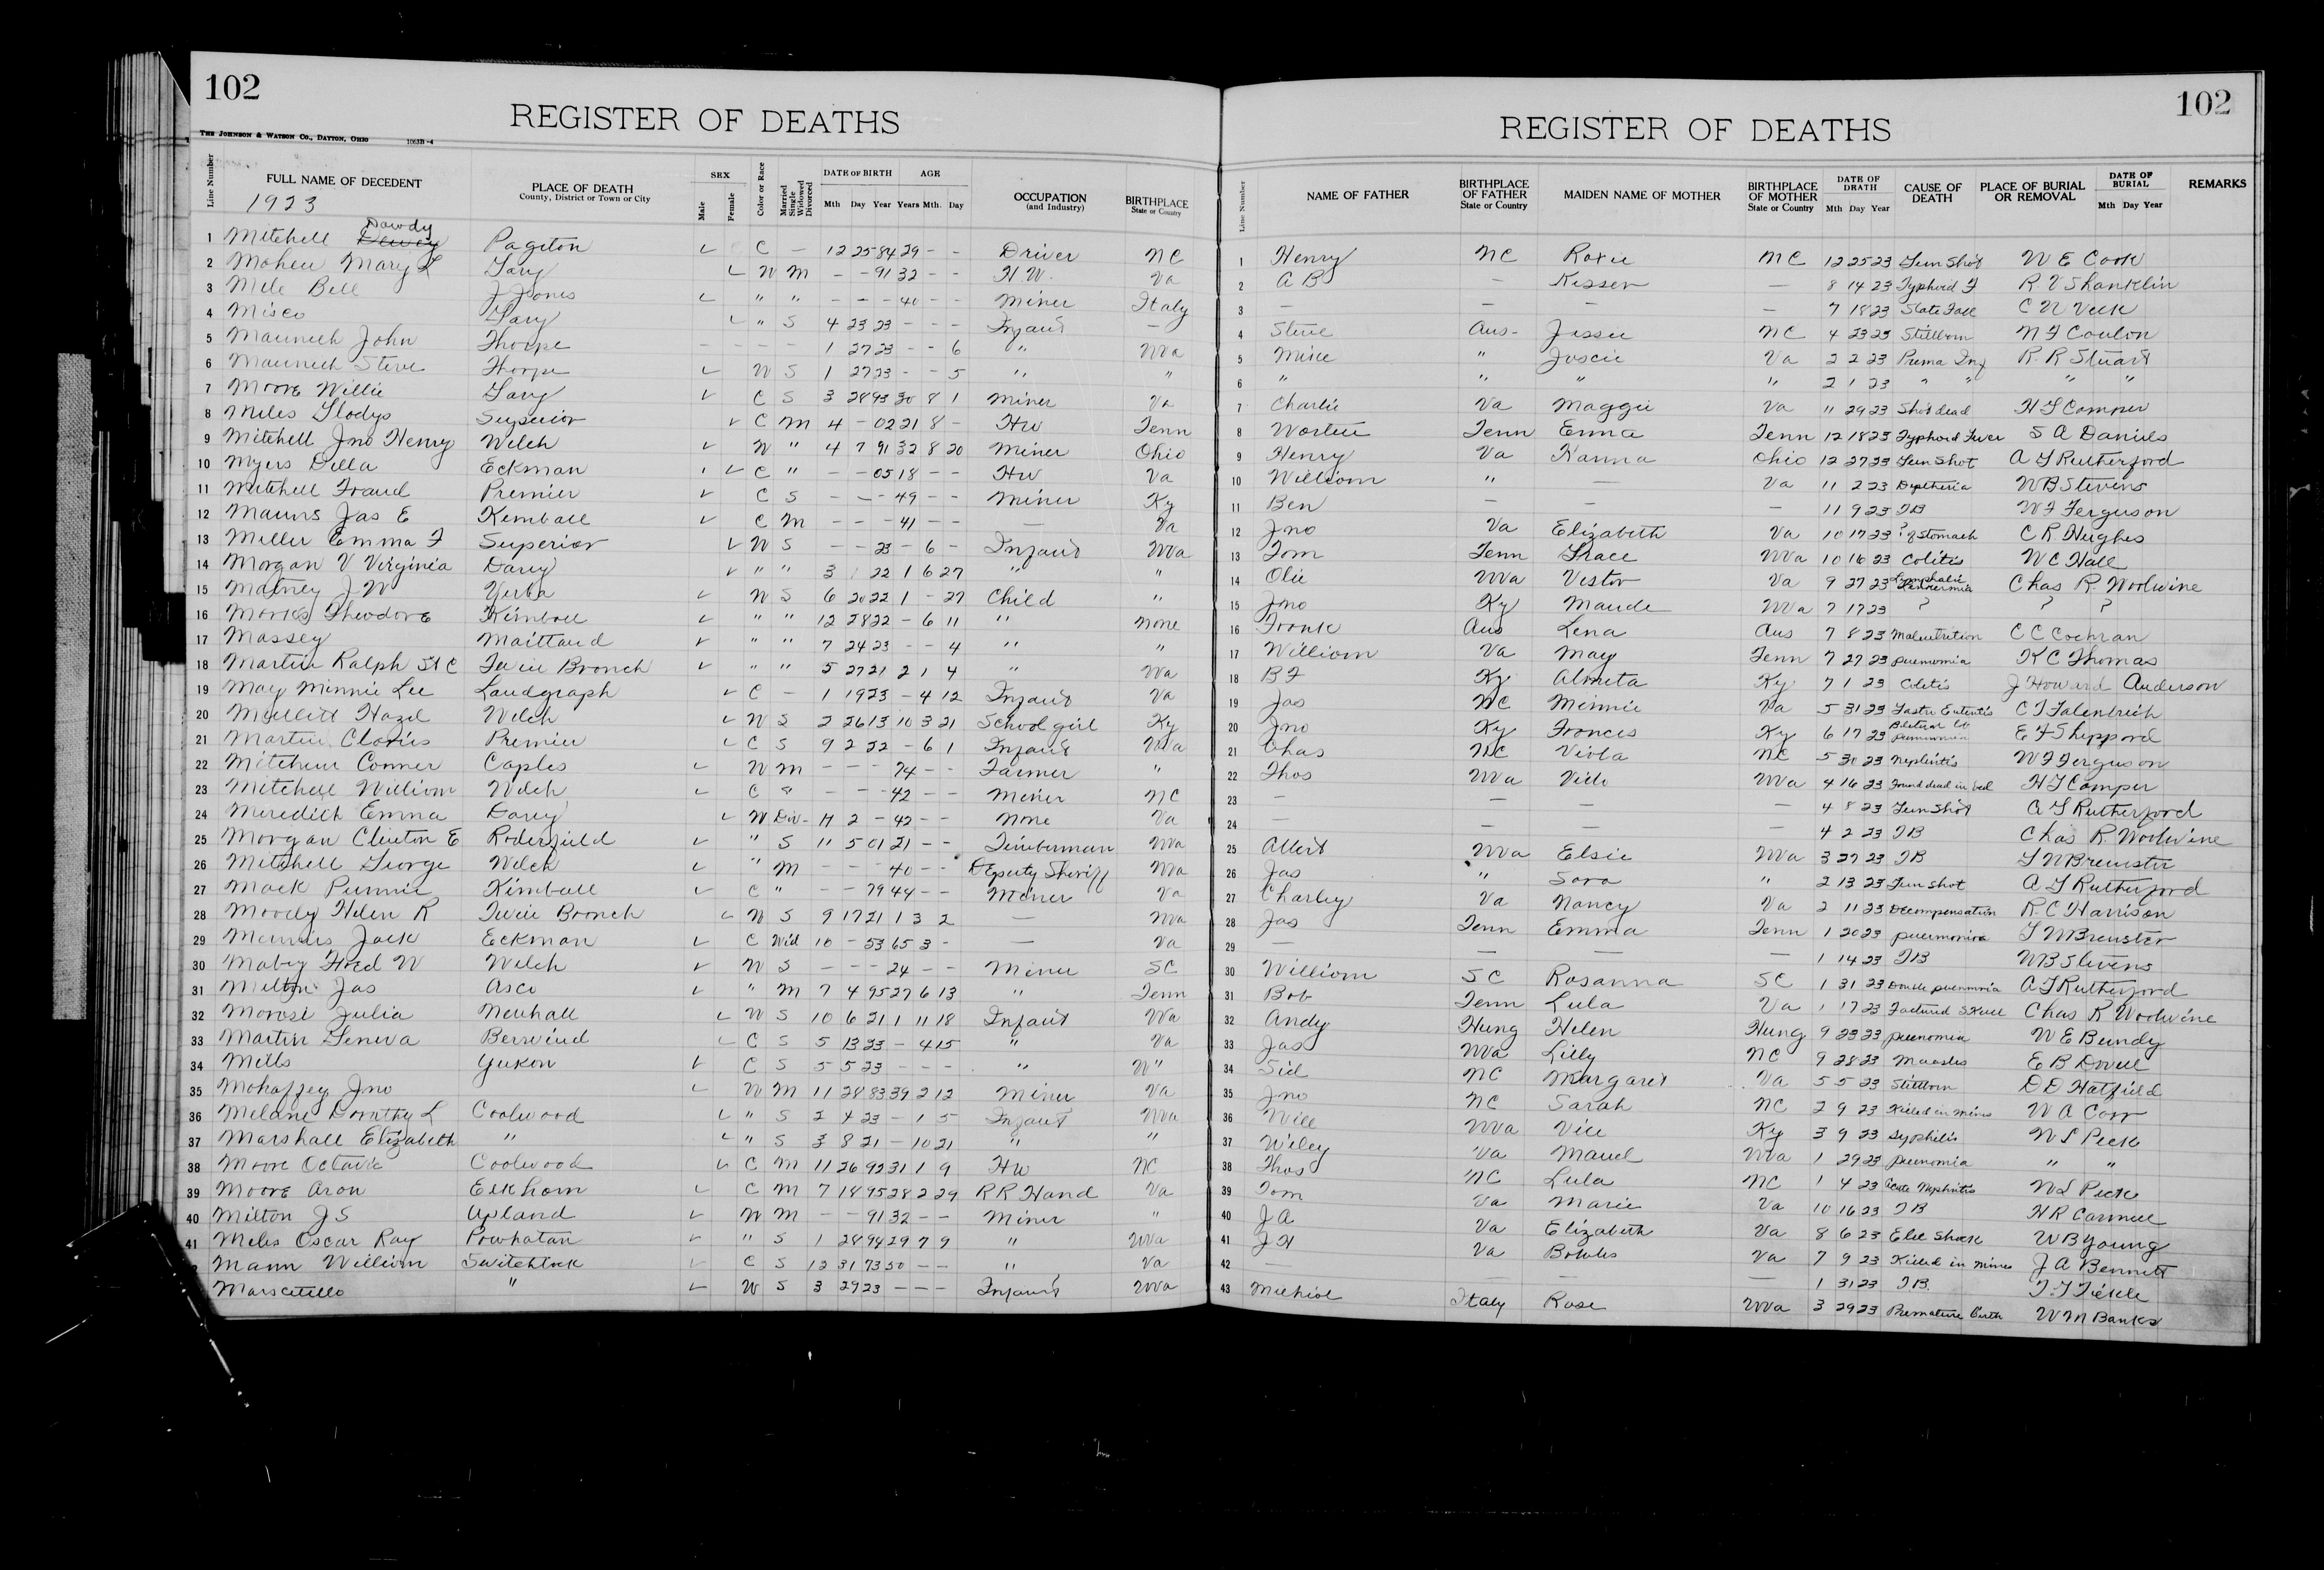 102
REGISTER OF DEATHS
THE JOHNSON & WATSON CO., DAYTON, OHIO 1063B-4
Line Number FULL NAME OF DECEDENT PLACE OF DEATH County, District or Town or City SEX Male Female Color or Race Married Single Widowed Divorced DATE OF BIRTH Mth Day Year AGE Years Mth. Day OCCUPATION (and Industry) BIRTHPLACE State or Country
1923
Dowdy
1 Mitchell Dewey Pageton ✓ C — 12 25 84 29 - - Driver NC
2 Mary L Gary ✓ W M - - 91 32 - - H W. Va
3 Mile Bell J Jones ✓ " " - - - 40 - - Miner Italy
4 Misco Gary ✓ " S 4 23 23 - - - Infant —
5 John Thorpe - - - - 1 27 23 - - 6 " WVa
6 Steve Thorpe ✓ W S 1 27 23 - - 5 " "
7 Moore Willie Gary ✓ C S 3 28 93 30 8 1 Miner Va
8 Miles Gladys Superior ✓ C M 4 - 02 21 8 - HW Tenn
9 Mitchell Jno Henry Welch ✓ W " 4 7 91 32 8 20 Miner Ohio
10 Myers Della Eckman ✓ C " - - 05 18 - - HW Va
11 Mitchell Premier ✓ C S - - - 49 - - Miner Ky
12 Jas E Kimball ✓ C M - - - 41 - - — Va
13 Miller Emma F Superior ✓ W S - - 23 - 6 - Infant WVa
14 Morgan V Virginia Davy ✓ " " 3 22 1 6 27 " "
15 Matney J W Yerba ✓ W S 6 20 22 1 - 27 Child "
16 Theodore Kimball ✓ " " 12 28 22 - 6 11 " None
17 Massey Maitland ✓ " " 7 24 23 - - 4 " "
18 Martin Ralph St C Twin Branch ✓ " " 5 27 21 2 1 4 " WVa
19 May Minnie Lee Landgraph ✓ C - 1 19 23 - 4 12 Infant Va
20 Hazel Welch ✓ W S 2 26 13 10 3 21 School girl Ky
21 Martin Premier ✓ C S 9 2 22 - 6 1 Infant WVa
22 Conner Caples ✓ W M - - - 74 - - Farmer "
23 Mitchell William Welch ✓ C - - - 42 - - Miner NC
24 Meredith Emma Davy ✓ W Div- 2 - 42 - - None Va
25 Morgan Clinton E Roderfield ✓ " S 11 5 01 21 - - Timberman WVa
26 Mitchell George Welch ✓ " M - - - 40 - - Deputy Sheriff WVa
27 Mack Kimball ✓ C " - - 79 44 - - Miner Va
28 Moody Helen R Twin Branch ✓ W S 9 17 21 1 3 2 — WVa
29 Jack Eckman ✓ C Wid 10 - 53 65 3 - — Va
30 Mabey Fred W Welch ✓ W S - - - 24 - - Miner SC
31 Melton Jas Asco ✓ " M 7 4 95 27 6 13 " Tenn
32 Julia Newhall ✓ W S 10 6 21 1 11 18 Infant WVa
33 Martin Geneva Berwind ✓ C S 5 13 23 - 4 15 " Va
34 Mills Yukon ✓ C S 5 5 23 - - - " W"
35 Mohaffey Jno ✓ W M 11 28 83 39 2 12 Miner Va
36 Dorothy L Coalwood ✓ " S 2 4 23 - 1 5 Infant WVa
37 Marshall Elizabeth " ✓ " S 3 8 21 - 10 21 " "
38 Moore Octavie Coalwood ✓ C M 11 26 92 31 1 9 HW NC
39 Moore Aron Elkhorn ✓ C M 7 18 95 28 2 29 RR Hand Va
40 Milton J S Upland ✓ W M - - 91 32 - - Miner "
41 Oscar Ray Powhatan ✓ " S 1 28 94 29 7 9 " WVa
Mann William Switchback ✓ C S 12 31 73 50 - - " Va
" ✓ W S 3 29 23 - - - Infant WVa
102
REGISTER OF DEATHS
Line Number NAME OF FATHER BIRTHPLACE OF FATHER State or Country MAIDEN NAME OF MOTHER BIRTHPLACE OF MOTHER State or Country DATE OF DEATH Mth Day Year CAUSE OF DEATH PLACE OF BURIAL OR REMOVAL DATE OF BURIAL Mth Day Year REMARKS
1 Henry NC Roxie NC 12 25 23 Gun Shot W E Cook
2 A B — — 8 14 23 Typhoid F R V Shanklin
3 — — — — 7 18 23 Slate Fall C N
4 Steve Aus- Jessie NC 4 23 23 Stillborn
5 " Va 2 2 23 Prema Inf R. R Stuart
6 " " " " 2 1 23 " " " "
7 Charlie Va Maggie Va 11 29 23 Shot dead H G Camper
8 Tenn Emma Tenn 12 18 23 Typhoid Fever S A Daniels
9 Henry Va Ohio 12 27 23 Gun Shot A G Rutherford
10 William " — Va 11 2 23 Diptheria W B Stevens
11 Ben — — — 11 9 23 TB W F Ferguson
12 Jno Va Elizabeth Va 10 17 23 ? of stomach C R Hughes
13 Tom Tenn Grace WVa 10 16 23 Colitis W C Hall
14 Olie WVa Va 9 27 23 Chas R. Woolwine
15 Jno Ky Maude WVa 7 17 23 ? ? ?
16 Frank Aus Lena Aus 7 8 23 Malnutrition C C Cochran
17 William Va May Tenn 7 27 23 pneumonia K C Thomas
18 B F Ky Almeta Ky 7 1 23 Colitis J Howard Anderson
19 Jas NC Minnie Va 5 31 23 Gastro Enteritis
20 Jno Ky Frances Ky 6 17 23 Bilateral lob pneumonia E F Sheppard
21 Chas NC Viola NC 5 30 23 Nephritis W F Ferguson
22 Thos WVa WVa 4 16 23 Found dead in bed H G Camper
23 — — — — 4 8 23 Gun Shot A G Rutherford
24 — — — — 4 2 23 TB Chas R. Woolwine
25 Albert WVa Elsie WVa 3 27 23 TB Brewster
26 Jas " Sara " 2 13 23 Gun shot A G Rutherford
27 Charley Va Nancy Va 2 11 23 Decompensation R. C Harrison
28 Jas Tenn Emma Tenn 1 20 23 pneumonia Brewster
29 — — — — 1 14 23 TB W B Stevens
30 William SC Rosanna SC 1 31 23 Double pneumonia A G Rutherford
31 Bob Tenn Lula Va 1 17 23 Factured Skull Chas R Woolwine
32 Andy Hung Helen Hung 9 23 23 pneumonia W E Bundy
33 Jas WVa Lilly NC 9 28 23 Measles E B
34 Sid NC Margaret Va 5 5 23 Stillborn D D Hatfield
35 Jno NC Sarah NC 2 9 23 Killed in mines W A
36 Will WVa Ky 3 9 23 Syphilis W S Peck
37 Wiley Va Maud WVa 1 29 23 pneumonia " "
38 Thos NC Lula NC 1 4 23 Acute Nephritis W S Peck
39 Tom Va Marie Va 10 16 23 TB H R
40 J A Va Elizabeth Va 8 6 23 Elec Shock W B Young
41 J H Va Va 7 9 23 Killed in mines J A Bennett
42 — — — — 1 31 23 TB. Tickle
43 Italy Rose WVa 3 29 23 Premature Birth W M Banks